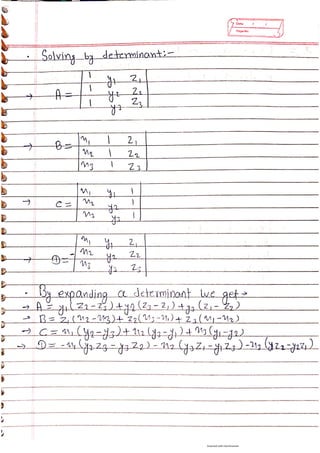 Date
Page No.
• Solving by determinant:-
→ A = | 1 y₁ z₁ |
| 1 y₂ z₂ |
| 1 y₃ z₃ |
→ B = | x₁ 1 z₁ |
| x₂ 1 z₂ |
| x₃ 1 z₃ |
→ C = | x₁ y₁ 1 |
| x₂ y₂ 1 |
| x₃ y₃ 1 |
→ D = - | x₁ y₁ z₁ |
| x₂ y₂ z₂ |
| x₃ y₃ z₃ |
• By expanding a determinant we get→
→ A = y₁(z₂-z₃)+y₂(z₃-z₁)+y₃(z₁-z₂)
→ B = z₁(x₂-x₃)+z₂(x₃-x₁)+z₃(x₁-x₂)
→ C = x₁(y₂-y₃)+x₂(y₃-y₁)+x₃(y₁-y₂)
→ D = -x₁(y₂z₃-y₃z₂)-x₂(y₃z₁-y₁z₃)-x₃(y₁z₂-y₂z₁)
Scanned with CamScanner